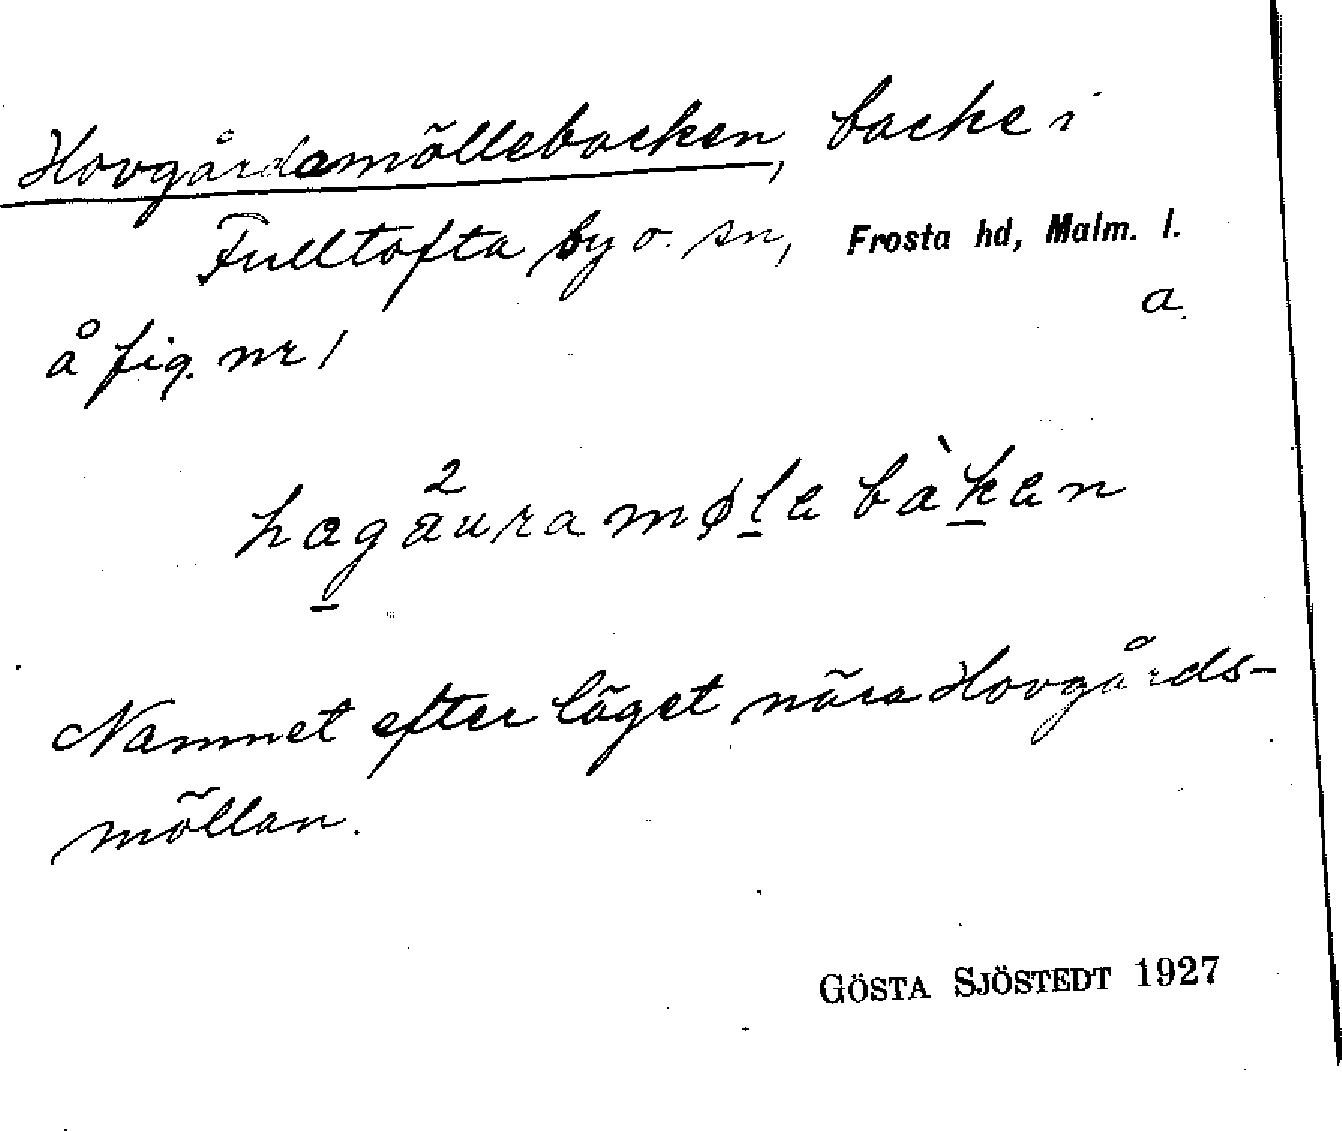 Hovgårdamöllebacken, backe i
Fulltofta by o. sn, Frosta hd, Malm. l.
a.
å fig. nr 1
2
hagåuramøle bàken
Namnet efter läget nära Hovgårds-
möllan.
GÖSTA SJÖSTEDT 1927